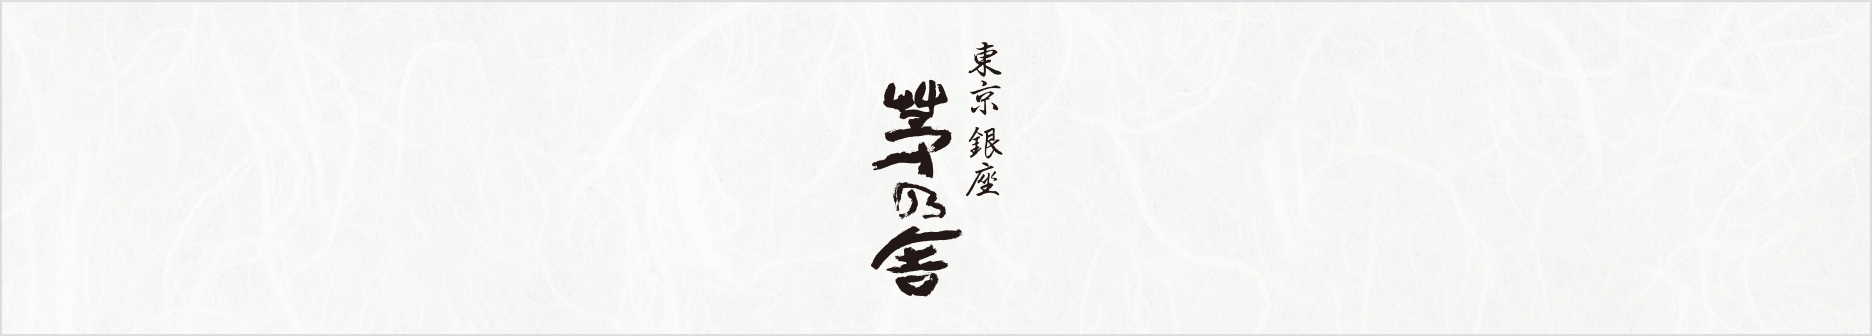 東京 銀座
茅乃舎